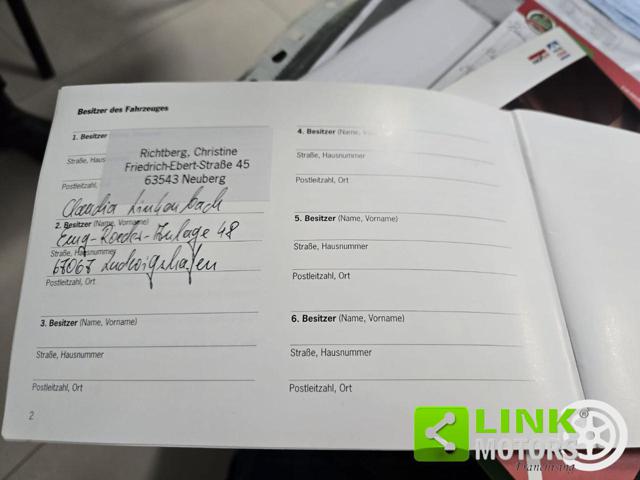 Besitzer des Fahrzeuges
1. Besitzer
Richtberg, Christine
Straße, Haus
Friedrich-Ebert-Straße 45
Postleitzahl,
63543 Neuberg
Claudia
2. Besitzer (Name, Vorname)
Anlage 48
Straße, Hausnummer
67067 Ludwigshafen
Postleitzahl, Ort
3. Besitzer (Name, Vorname)
Straße, Hausnummer
Postleitzahl, Ort
2
4. Besitzer (Name, Vorname)
Straße, Hausnummer
Postleitzahl, Ort
5. Besitzer (Name, Vorname)
Straße, Hausnummer
Postleitzahl, Ort
6. Besitzer (Name, Vorname)
Straße, Hausnummer
Postleitzahl, Ort
LINK®
MOTORS
Franchising